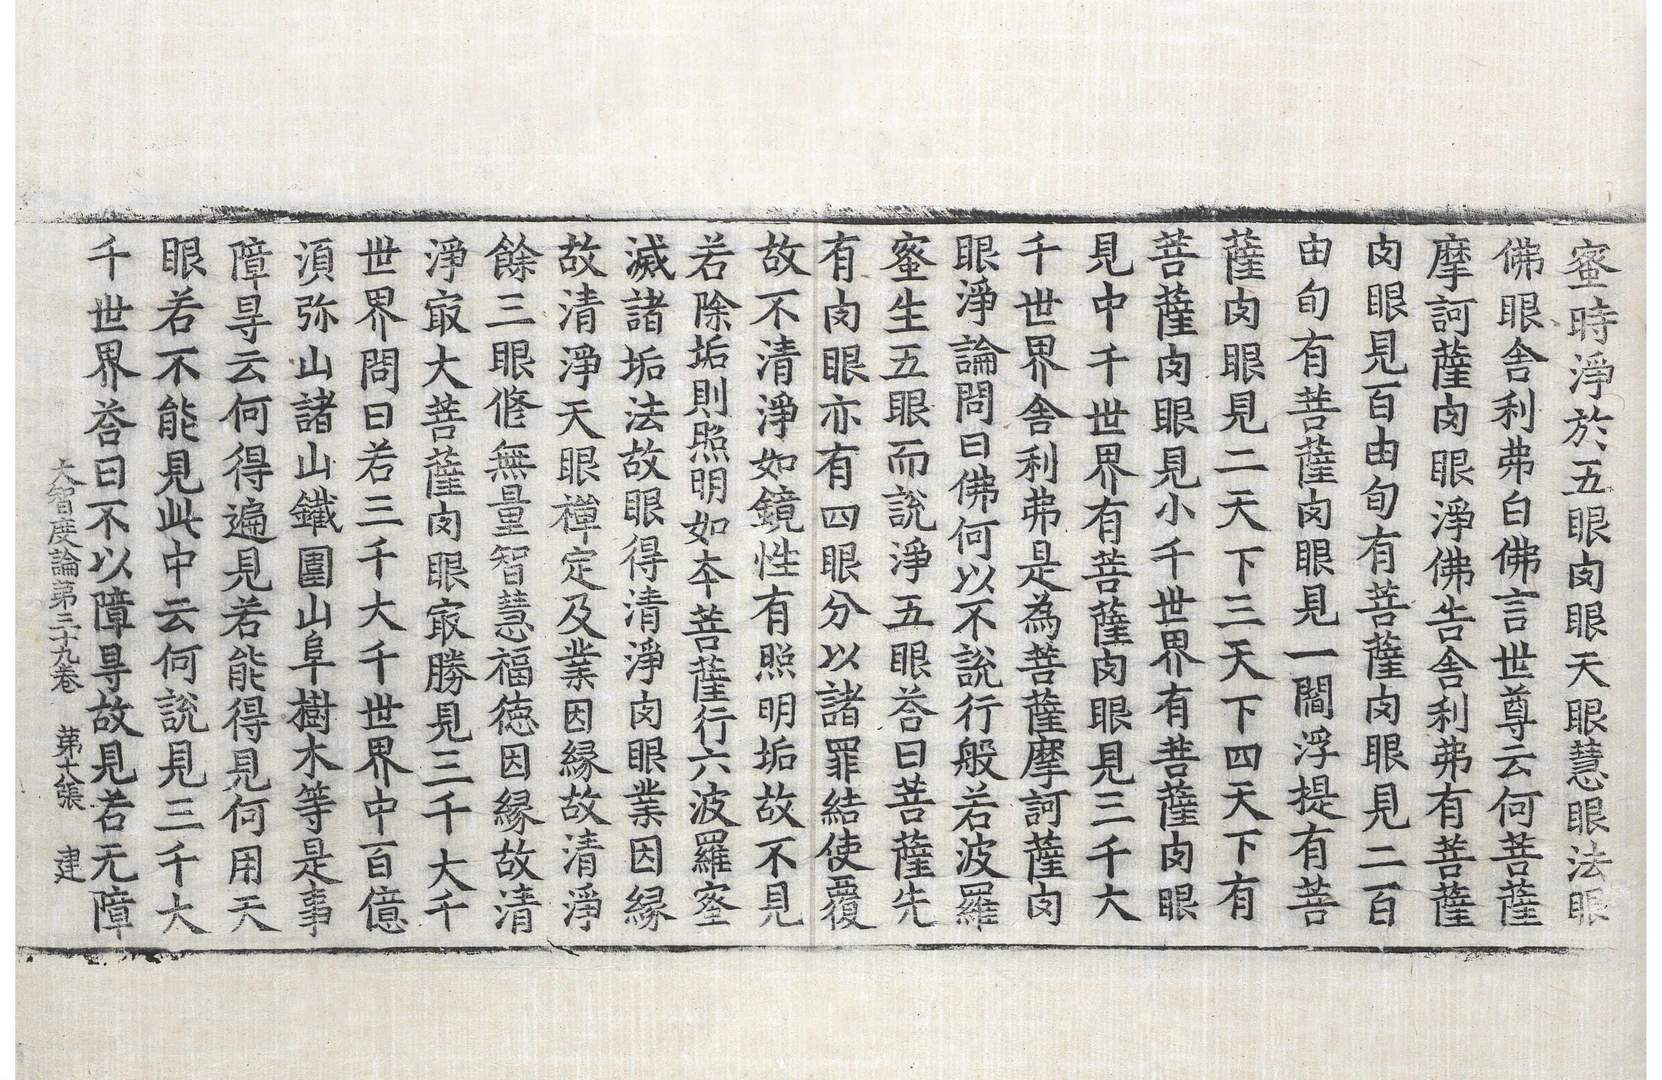 蜜時淨於五眼肉眼天眼慧眼法眼
佛眼舍利弗白佛言世尊云何菩薩
摩訶薩肉眼淨佛告舍利弗有菩薩
肉眼見百由旬有菩薩肉眼見二百
由旬有菩薩肉眼見一閻浮提有菩
薩肉眼見二天下三天下四天下有
菩薩肉眼見小千世界有菩薩肉眼
見中千世界有菩薩肉眼見三千大
千世界舍利弗是為菩薩摩訶薩肉
眼淨論問曰佛何以不說行般若波羅
蜜生五眼而說淨五眼荅曰菩薩先
有肉眼亦有四眼分以諸罪結使覆
故不清淨如鏡性有照明垢故不見
若除垢則照明如夲菩薩行六波羅蜜
滅諸垢法故眼得清淨肉眼業因緣
故清淨天眼禪定及業因緣故清淨
餘三眼修無量智慧福德因緣故清
淨㝡大菩薩肉眼㝡勝見三千大千
世界問曰若三千大千世界中百億
湏弥山諸山鐵圍山阜樹木等是事
障㝵云何得遍見若能得見何用天
眼若不能見此中云何說見三千大
千世界荅曰不以障㝵故見若无障
大智度論第三十九卷　第十八張　建